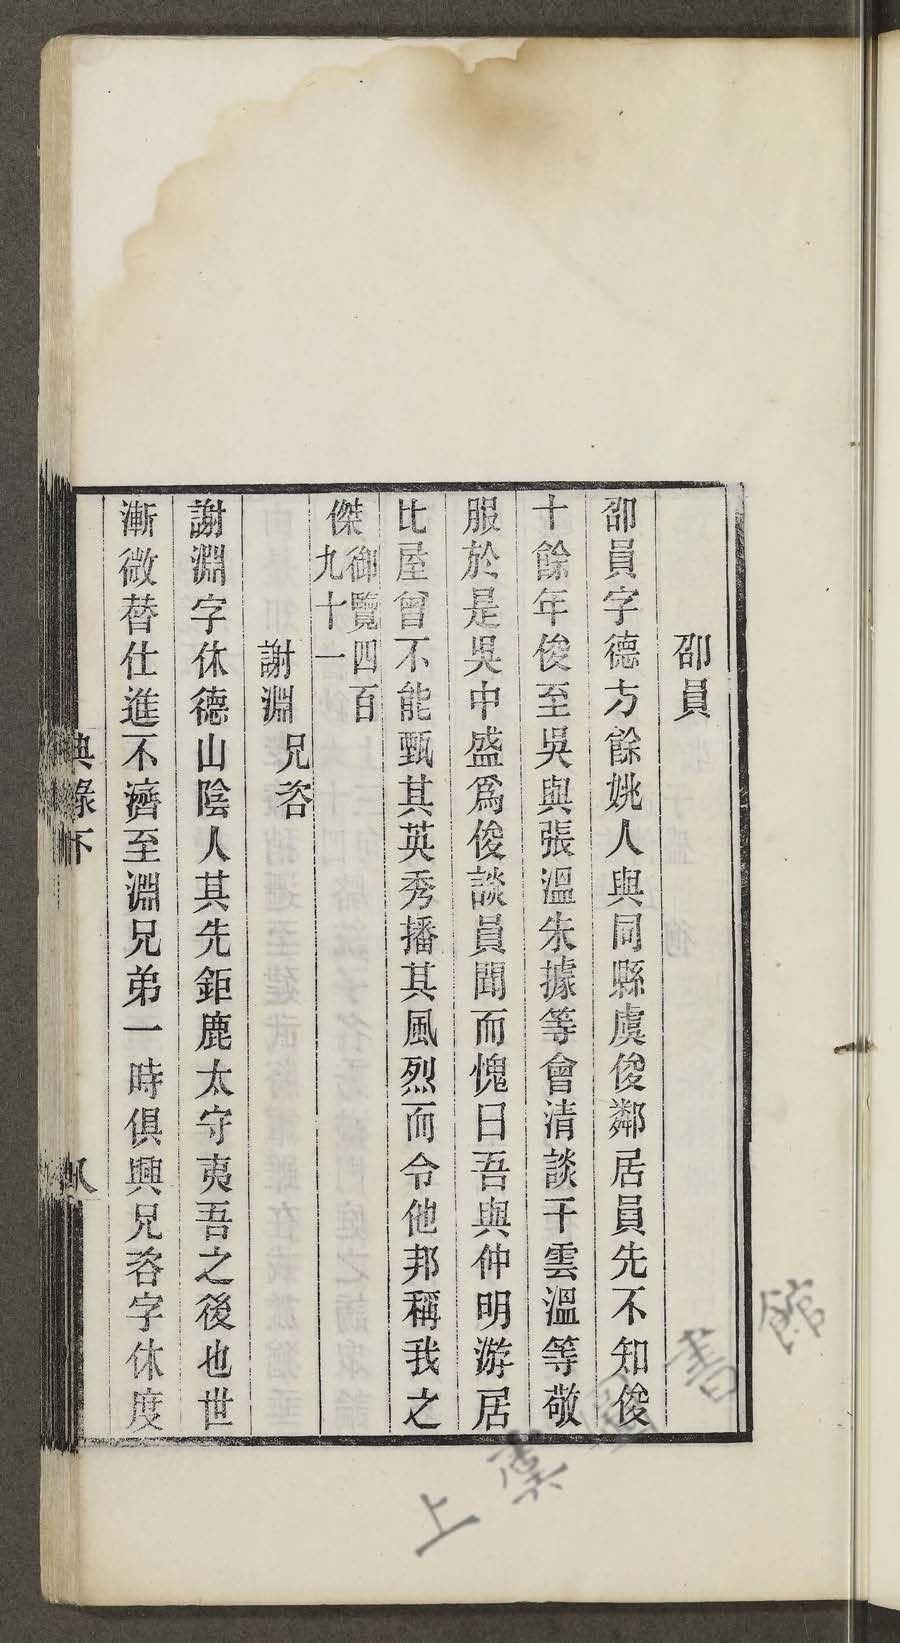 邵員
邵員字德方餘姚人與同縣虞俊鄰居員先不知俊
十餘年俊至吳與張溫朱據等會清談干雲溫等敬
服於是吳中盛爲俊談員聞而愧曰吾與仲明游居
比屋曾不能甄其英秀播其風烈而令他邦稱我之
傑御覽四百九十一
謝淵 兄咨
謝淵字休德山陰人其先鉅鹿太守夷吾之後也世
漸微替仕進不濟至淵兄弟一時俱興兄咨字休度
典錄下
八
上虞圖書館